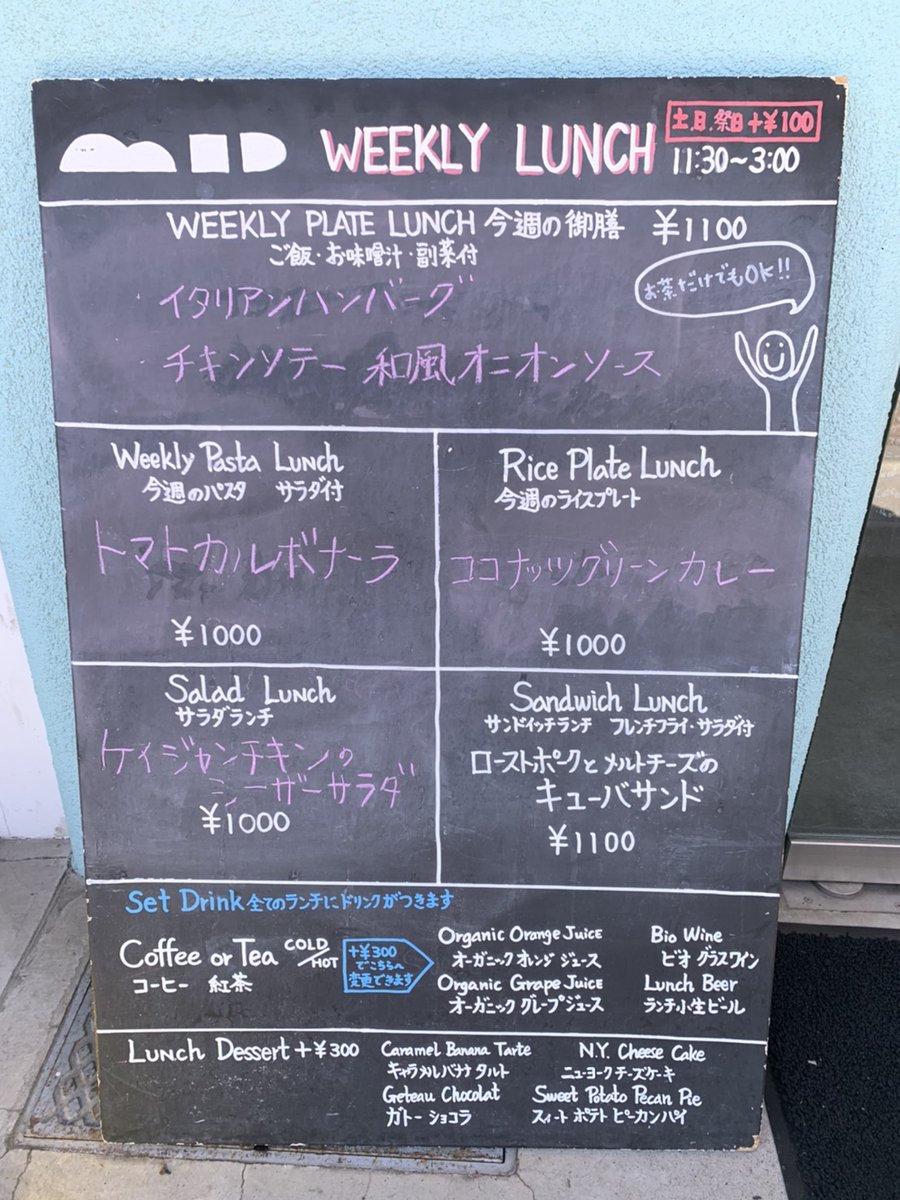 WEEKLY LUNCH
土.日.祭日+¥100
11:30~3:00
WEEKLY PLATE LUNCH 今週の御膳 ¥1100
ご飯・お味噌汁・副菜付
お茶だけでもOK!!
イタリアンハンバーグ
チキンソテー 和風オニオンソース
Weekly Pasta Lunch
今週のパスタ サラダ付
トマトカルボナーラ
¥1000
Rice Plate Lunch
今週のライスプレート
ココナッツグリーンカレー
¥1000
Salad Lunch
サラダランチ
ケイジャンチキンの
シーザーサラダ
¥1000
Sandwich Lunch
サンドイッチランチ フレンチフライ・サラダ付
ローストポークとメルトチーズの
キューバサンド
¥1100
Set Drink 全てのランチにドリンクがつきます
Coffee or Tea COLD/HOT
コーヒー 紅茶
+¥300
でこちらへ
変更できます
Organic Orange Juice
オーガニック オレンジ ジュース
Organic Grape Juice
オーガニック グレープジュース
Bio Wine
ビオ グラスワイン
Lunch Beer
ランチ小生ビール
Lunch Dessert +¥300
Caramel Banana Tarte
キャラメルバナナ タルト
N.Y. Cheese Cake
ニューヨークチーズケーキ
Geteau Chocolat
ガトー ショコラ
Sweet Potato Pecan Pie
スィート ポテト ピーカンパイ